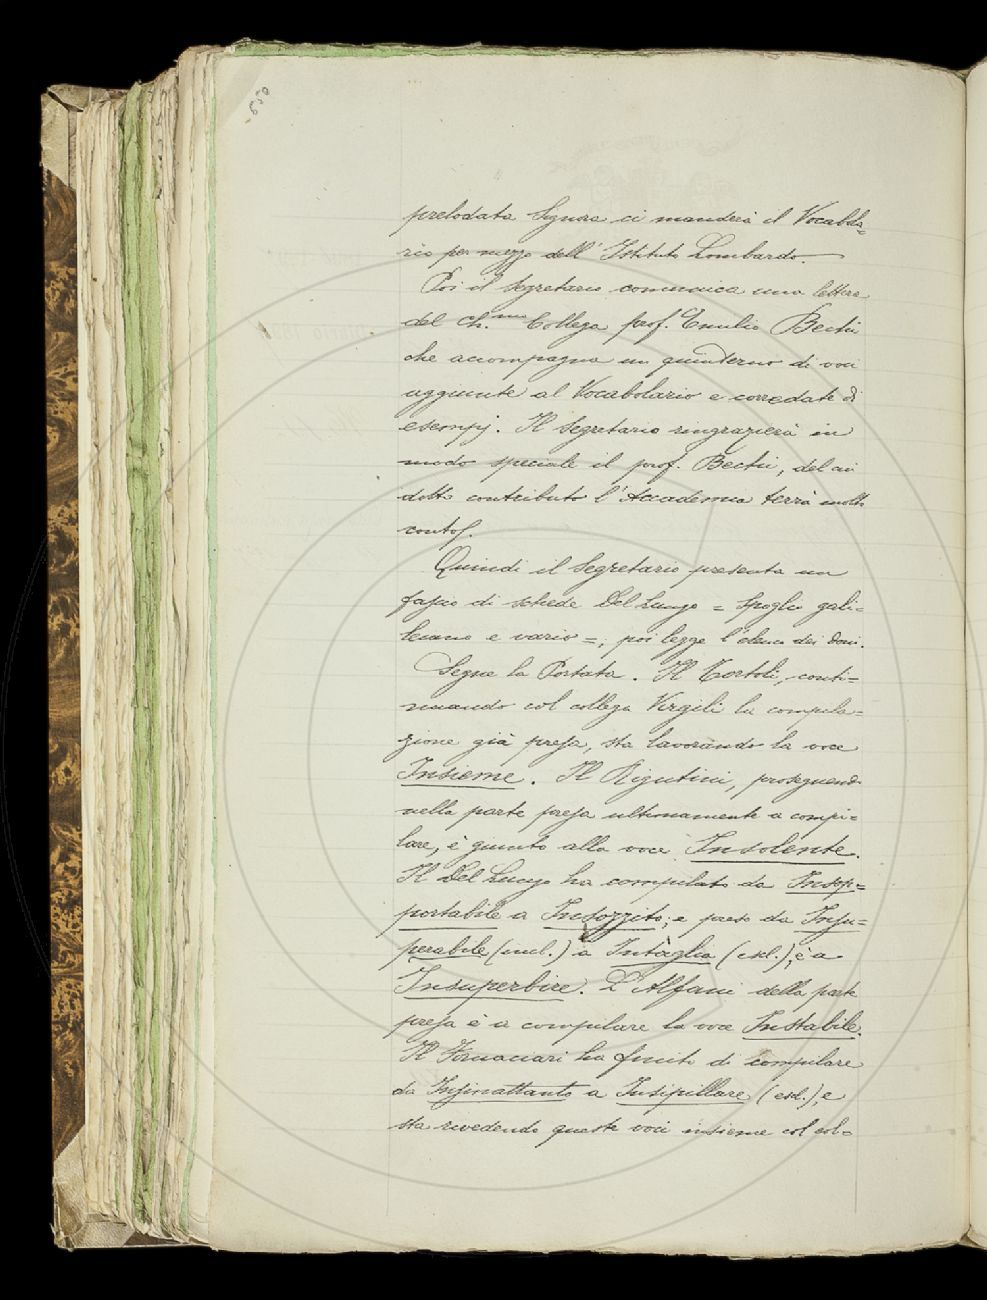 prelodata Signora ci manderà il Vocabola=
rio per mezzo dell'Istituto Lombardo.
Poi il Segretario comunica una lettera
del Ch.mo Collega prof. Emilio Bechi
che accompagna un quinterno di voci
aggiunte al Vocabolario e corredate di
esempj. Il Segretario ringrazierà in
modo speciale il prof. Bechi, del cui
dotto contributo l'Accademia terrà molto
conto.
Quindi il Segretario presenta un
fascio di schede Del Lungo = Spoglio gali=
leiano e vario =; poi legge l'elenco dei doni.
Segue la Portata. Il Tortoli, conti=
nuando col collega Virgili la compila=
zione già presa, sta lavorando la voce
Insieme. Il Rigutini, proseguendo
nella parte presa ultimamente a compi=
lare, è giunto alla voce Insolente.
Il Del Lungo ha compilato da Insop=
portabile a Insozzito; e preso da Insu=
perabile (incl.) a Intaglia (escl.), è a
Insuperbire. L'Alfani della parte
presa è a compilare la voce Instabile.
Il Fornaciari ha finito di compilare
da Insinattanto a Insipillare (escl.), e
sta rivedendo queste voci insieme col col=